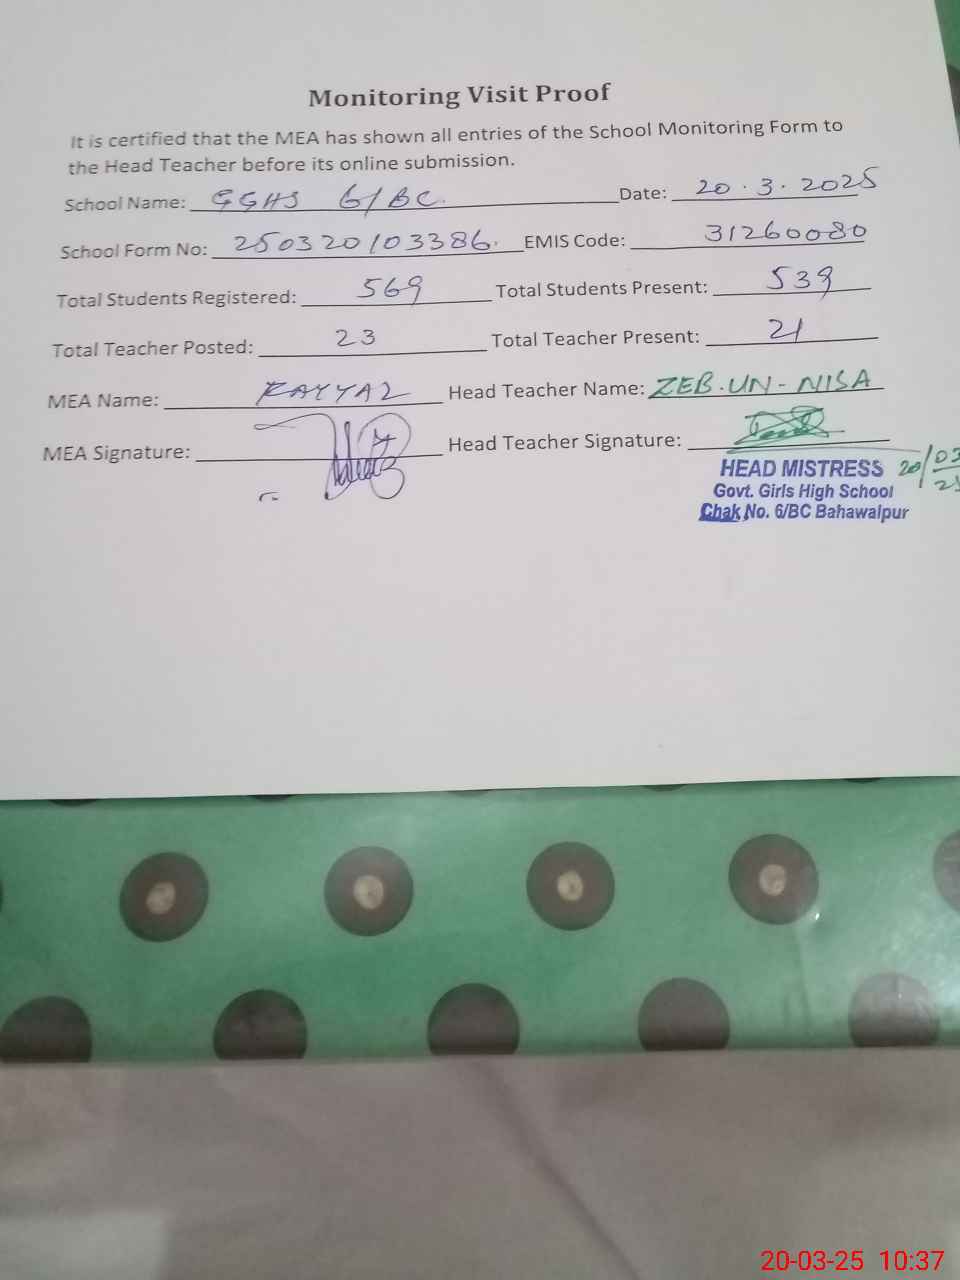 Monitoring Visit Proof
It is certified that the MEA has shown all entries of the School Monitoring Form to
the Head Teacher before its online submission.
School Name: GGHS 6/BC. Date: 20.3.2025
School Form No: 250320103386. EMIS Code: 31260080
Total Students Registered: 569 Total Students Present: 539
Total Teacher Posted: 23 Total Teacher Present: 21
MEA Name: Head Teacher Name: ZEB.UN-NISA
MEA Signature: Head Teacher Signature:
HEAD MISTRESS 20/03
Govt. Girls High School
Chak No. 6/BC Bahawalpur
20-03-25 10:37